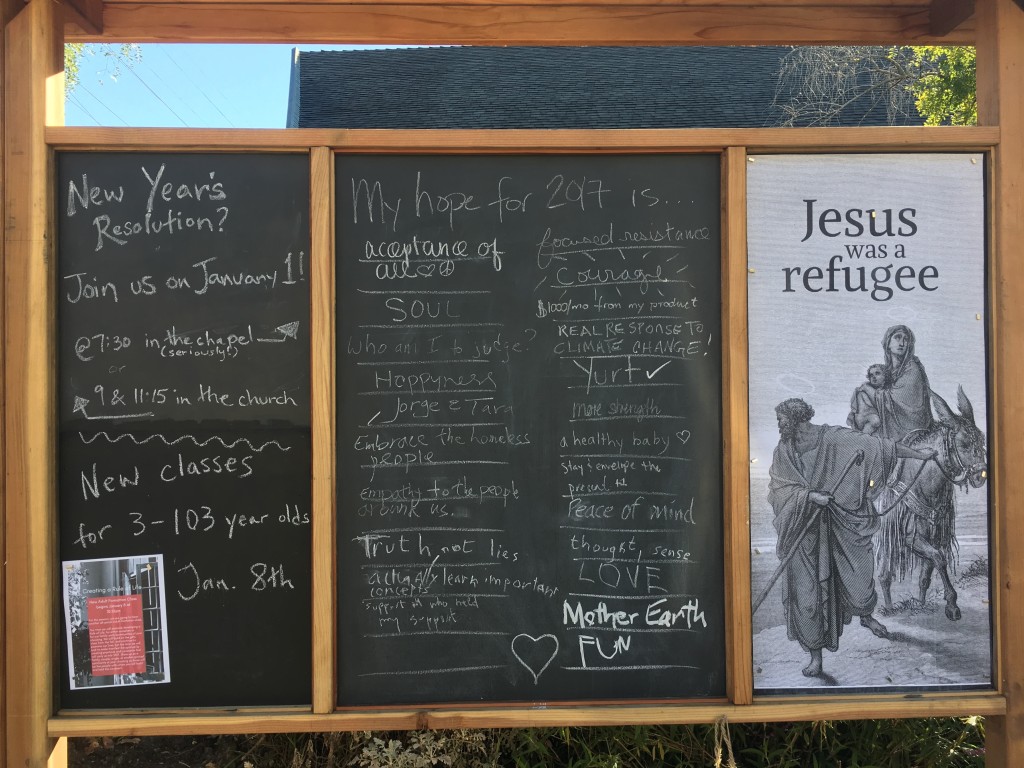 New Year's
Resolution?
Join us on January 1!
@7:30 in the chapel
(seriously!)
or
9 & 11:15 in the church
New classes
for 3-103 year olds
Jan. 8th
Creating a Rule
My hope for 2017 is...
acceptance of
all
SOUL
Who am I to judge?
Happyness
Jorge & Tara
Embrace the homeless
people
Empathy to the people
around us.
Truth, not lies
actually learn important
concepts
support
my
focused resistance
Courage
$1000/mo from my product
REAL RESPONSE TO
CLIMATE CHANGE!
Yurt ✓
more strength
a healthy baby ♡
stay & envelope the
Peace of mind
thought, sense
LOVE
Mother Earth
FUN
Jesus
was a
refugee